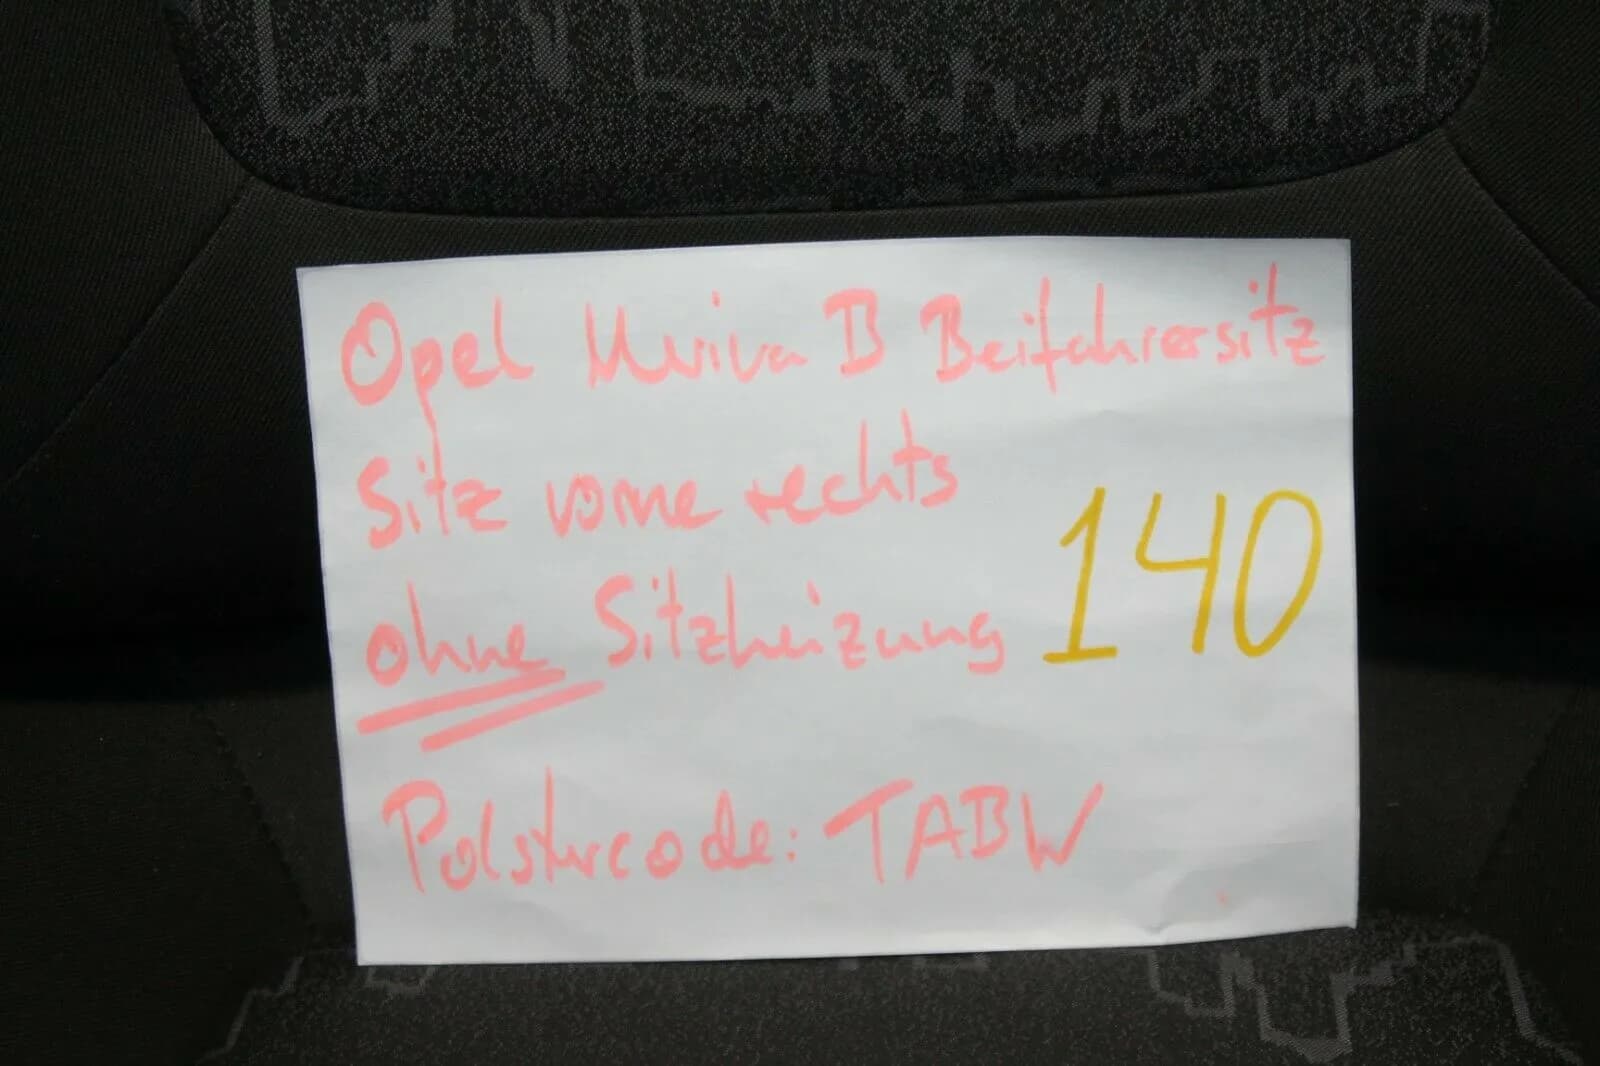 Opel Meriva B Beifahrersitz
Sitz vorne rechts
140
ohne Sitzheizung
Polstercode: TABW